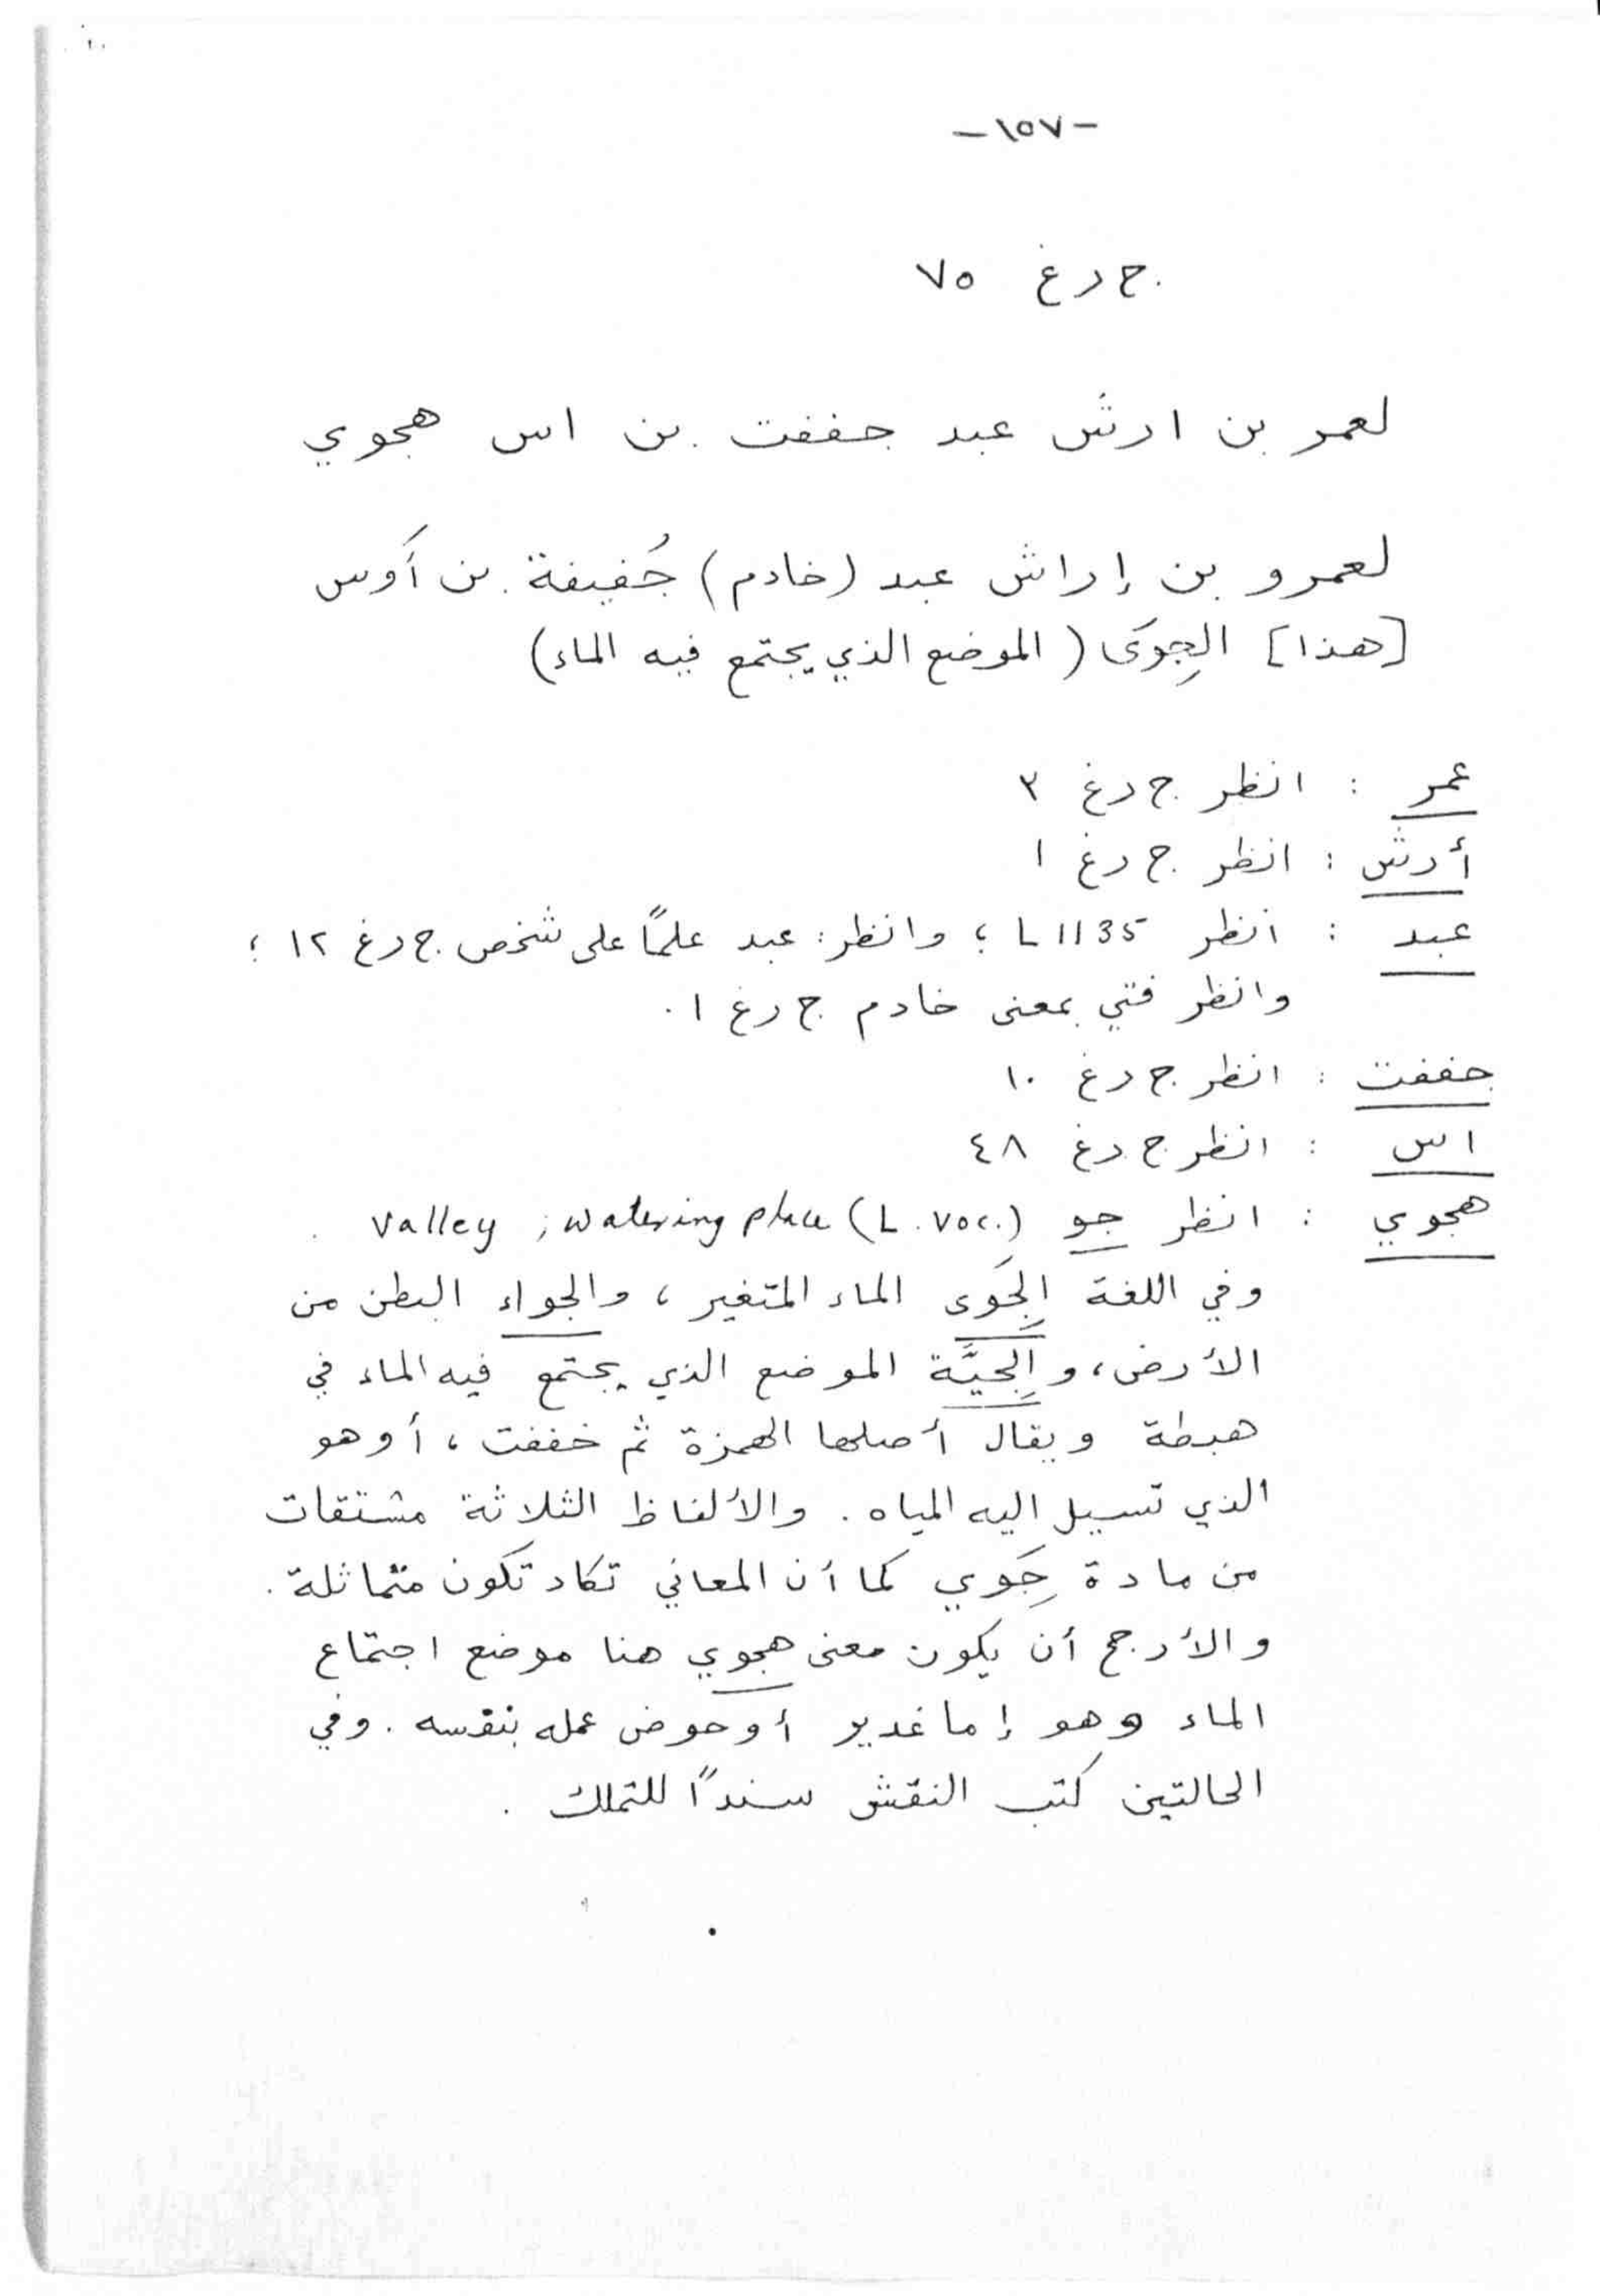 -١٥٧-
ج د غ ٧٥
لعمر بن ارش عبد جففت بن اس هجوي
لعمرو بن إراش عبد (خادم) جُفيفة بن أَوس
[هذا] الجِوَى (الموضع الذي يجتمع فيه الماء)
عمر : انظر ج د غ ٣
أرش : انظر ج د غ ١
عبد : انظر L 1135 ؛ وانظر: عبد علمًا على شخص ج د غ ١٢ ؛
وانظر فتي بمعنى خادم ج د غ ١٠
جففت : انظر ج د غ ١٠
اس : انظر ج د غ ٤٨
هجوي : انظر جو (L. voc.) valley ; watering place .
وفي اللغة الجِوَى الماء المتغير ، والجواء البطن من
الأرض، والجِيَّة الموضع الذي يجتمع فيه الماء في
هبطة ويقال أصلها الهمزة ثم خففت ، أو هو
الذي تسيل اليه المياه . والألفاظ الثلاثة مشتقات
من مادة جِوَي كما أن المعاني تكاد تكون متماثلة .
والأرجح أن يكون معنى هجوي هنا موضع اجتماع
الماء وهو إما غدير أو حوض عمله بنفسه . وفي
الحالتين كتب النقش سندًا للتملك .